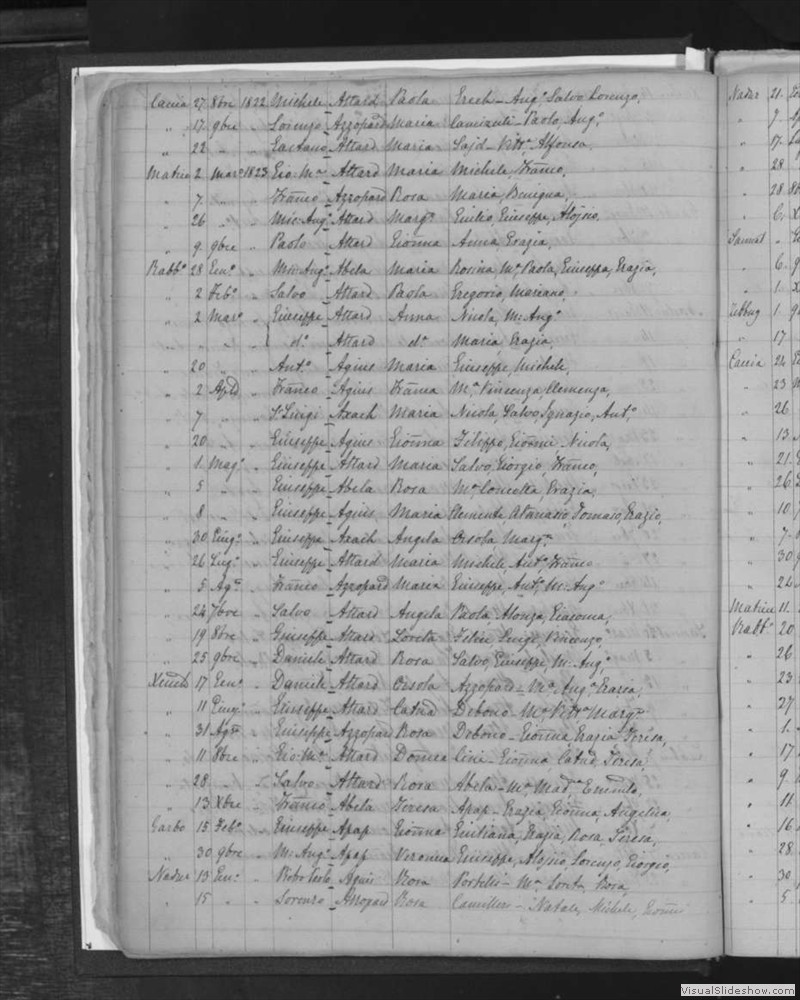 Caccia 27 8bre 1822 Michele Attard Paola Erech - Augª Salvo Lorenzo,
" 17 9bre " Lorenzo Azzopard Maria Paolo, Augº
" 22 " " Gaetano Attard Maria Sajd - Alfonso.
Matrice 2 Marº 1823 Gio Mª Attard Maria Michele, Franco,
" 7 " " Franco Azzopard Rosa Maria, Benigna,
" 26 " " Mic: Angº Attard Margª Emilio, Giuseppe, Alojsio,
" 9 9bre " Paolo Attard Gionna Anna Grazia,
Rabbº 28 Genº " Mic: Angº Abela Maria Rosina, Mª Paola, Giuseppa, Grazia,
" 2 Febº " Salvo Attard Paola Gregorio, Mariano,
" 2 Marº " Giuseppe Attard Anna Nicola, M: Angº
" " " " dº Attard dº Maria Grazia,
" 20 " " Antº Agius Maria Giuseppe, Michele,
" 2 April " Franco Agius Franca Mª Vincenza, Clemenza,
" 7 " " Luigi Axach Maria Nicola, Salvo, Ignazio, Antº
" 20 " " Giuseppe Agius Gionna Filippo, Gionni Nicola,
" 1 Magº " Giuseppe Attard Maria Salvo, Giorgio, Franco,
" 5 " " Giuseppe Abela Rosa Mª Concetta, Grazia,
" 8 " " Giuseppe Agius Maria Clemente, Atanasio, Tomaso, Grazio,
" 30 Giugº " Giuseppe Axach Angela Orsola Margª
" 26 Lugº " Giuseppe Attard Maria Michele Antº, Franco
" 5 Agº " Franco Azzopard Maria Giuseppe, Antº, M: Angº
" 24 7bre " Salvo Attard Angela Paola, Giacoma,
" 19 8bre " Giuseppe Attard Loreta Felice Luigi, Vincenzo,
" 25 9bre " Daniele Attard Rosa Salvo, Giuseppe, M: Angº
Xeuch 17 Genº " Daniele Attard Orsola Azzopard - Mª Angª
" 11 Giugº " Giuseppe Attard Catna Debono - Mª Margª
" 31 Agº " Giuseppe Azzopard Rosa Debono - Gionna Grazia Teresa,
" 11 8bre " Gio: Mª Attard Domca Cini - Gionna Catna, Teresa
" 28 " " Salvo Attard Rosa Abela - Mª Madª
" 13 Xbre " Franco Abela Teresa Apap - Grazia, Gionna, Angelica,
Garbo 15 Febº " Giuseppe Apap Gionna Giuliana, Grazia, Rosa Teresa,
" 30 9bre " M: Angº Apap Veronica Giuseppe, Alojsio, Lorenzo, Giorgio,
Nadur 13 Genº " Agius Rosa Portelli - Mª Rosa,
" 15 " " Lorenzo Azzopard Rosa Camilleri - Natale, Michele, Gionni
Nadur 21
" 7
" 17
" 28
" 28
" 6
Sannat "
" 6
" 1
Zebbug 1
" 17
Caccia 24
" 23
" 26
" 13
" 21
" 26
" 10
" 7
" 30
" 22
Matrice 11
Rabbº 20
" 26
" 23
" 27
" 1
" 17
" 9
" 11
" 16
" 28
" 30
" 5
VisualSlideshow.com